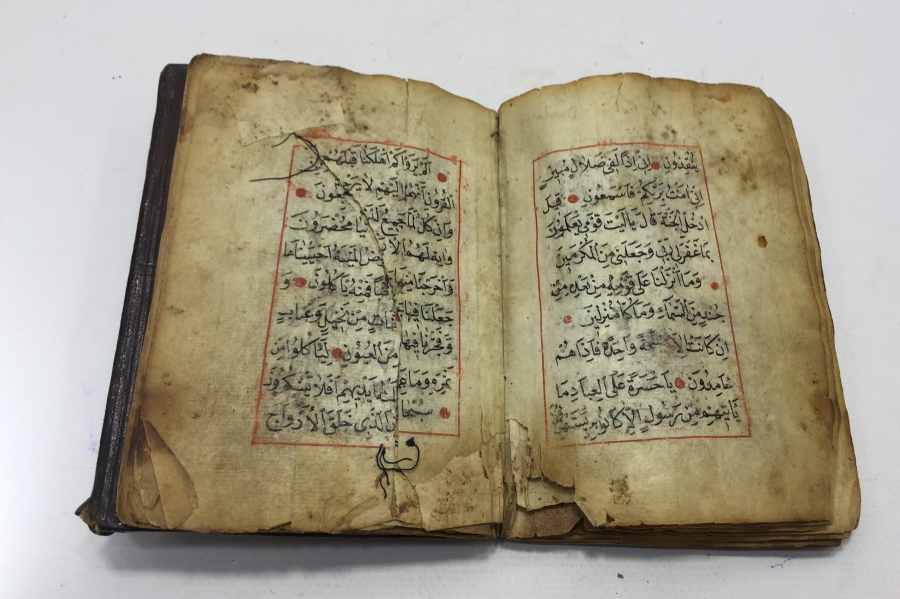 ينقذون اني اذا لفي ضلال مبين
اني امنت بربكم فاسمعون قيل
ادخل الجنة قال يا ليت قومي يعلمون
بما غفر لي ربي وجعلني من المكرمين
وما انزلنا على قومه من بعده من
جند من السماء وما كنا منزلين
ان كانت الا صيحة واحدة فاذا هم
خامدون يا حسرة على العباد ما
ياتيهم من رسول الا كانوا به يستهز
الم يروا كم اهلكنا قبلهم من
القرون انهم اليهم لا يرجعون
وان كل لما جميع لدينا محضرون
واية لهم الارض الميتة احييناها
واخرجنا منها فمنه ياكلون و
جعلنا فيها من نخيل وعناب
وفجرنا فيها من العيون لياكلوا من
ثمره وما ايديهم افلا يشكرون
سبحان الذي خلق الازواج